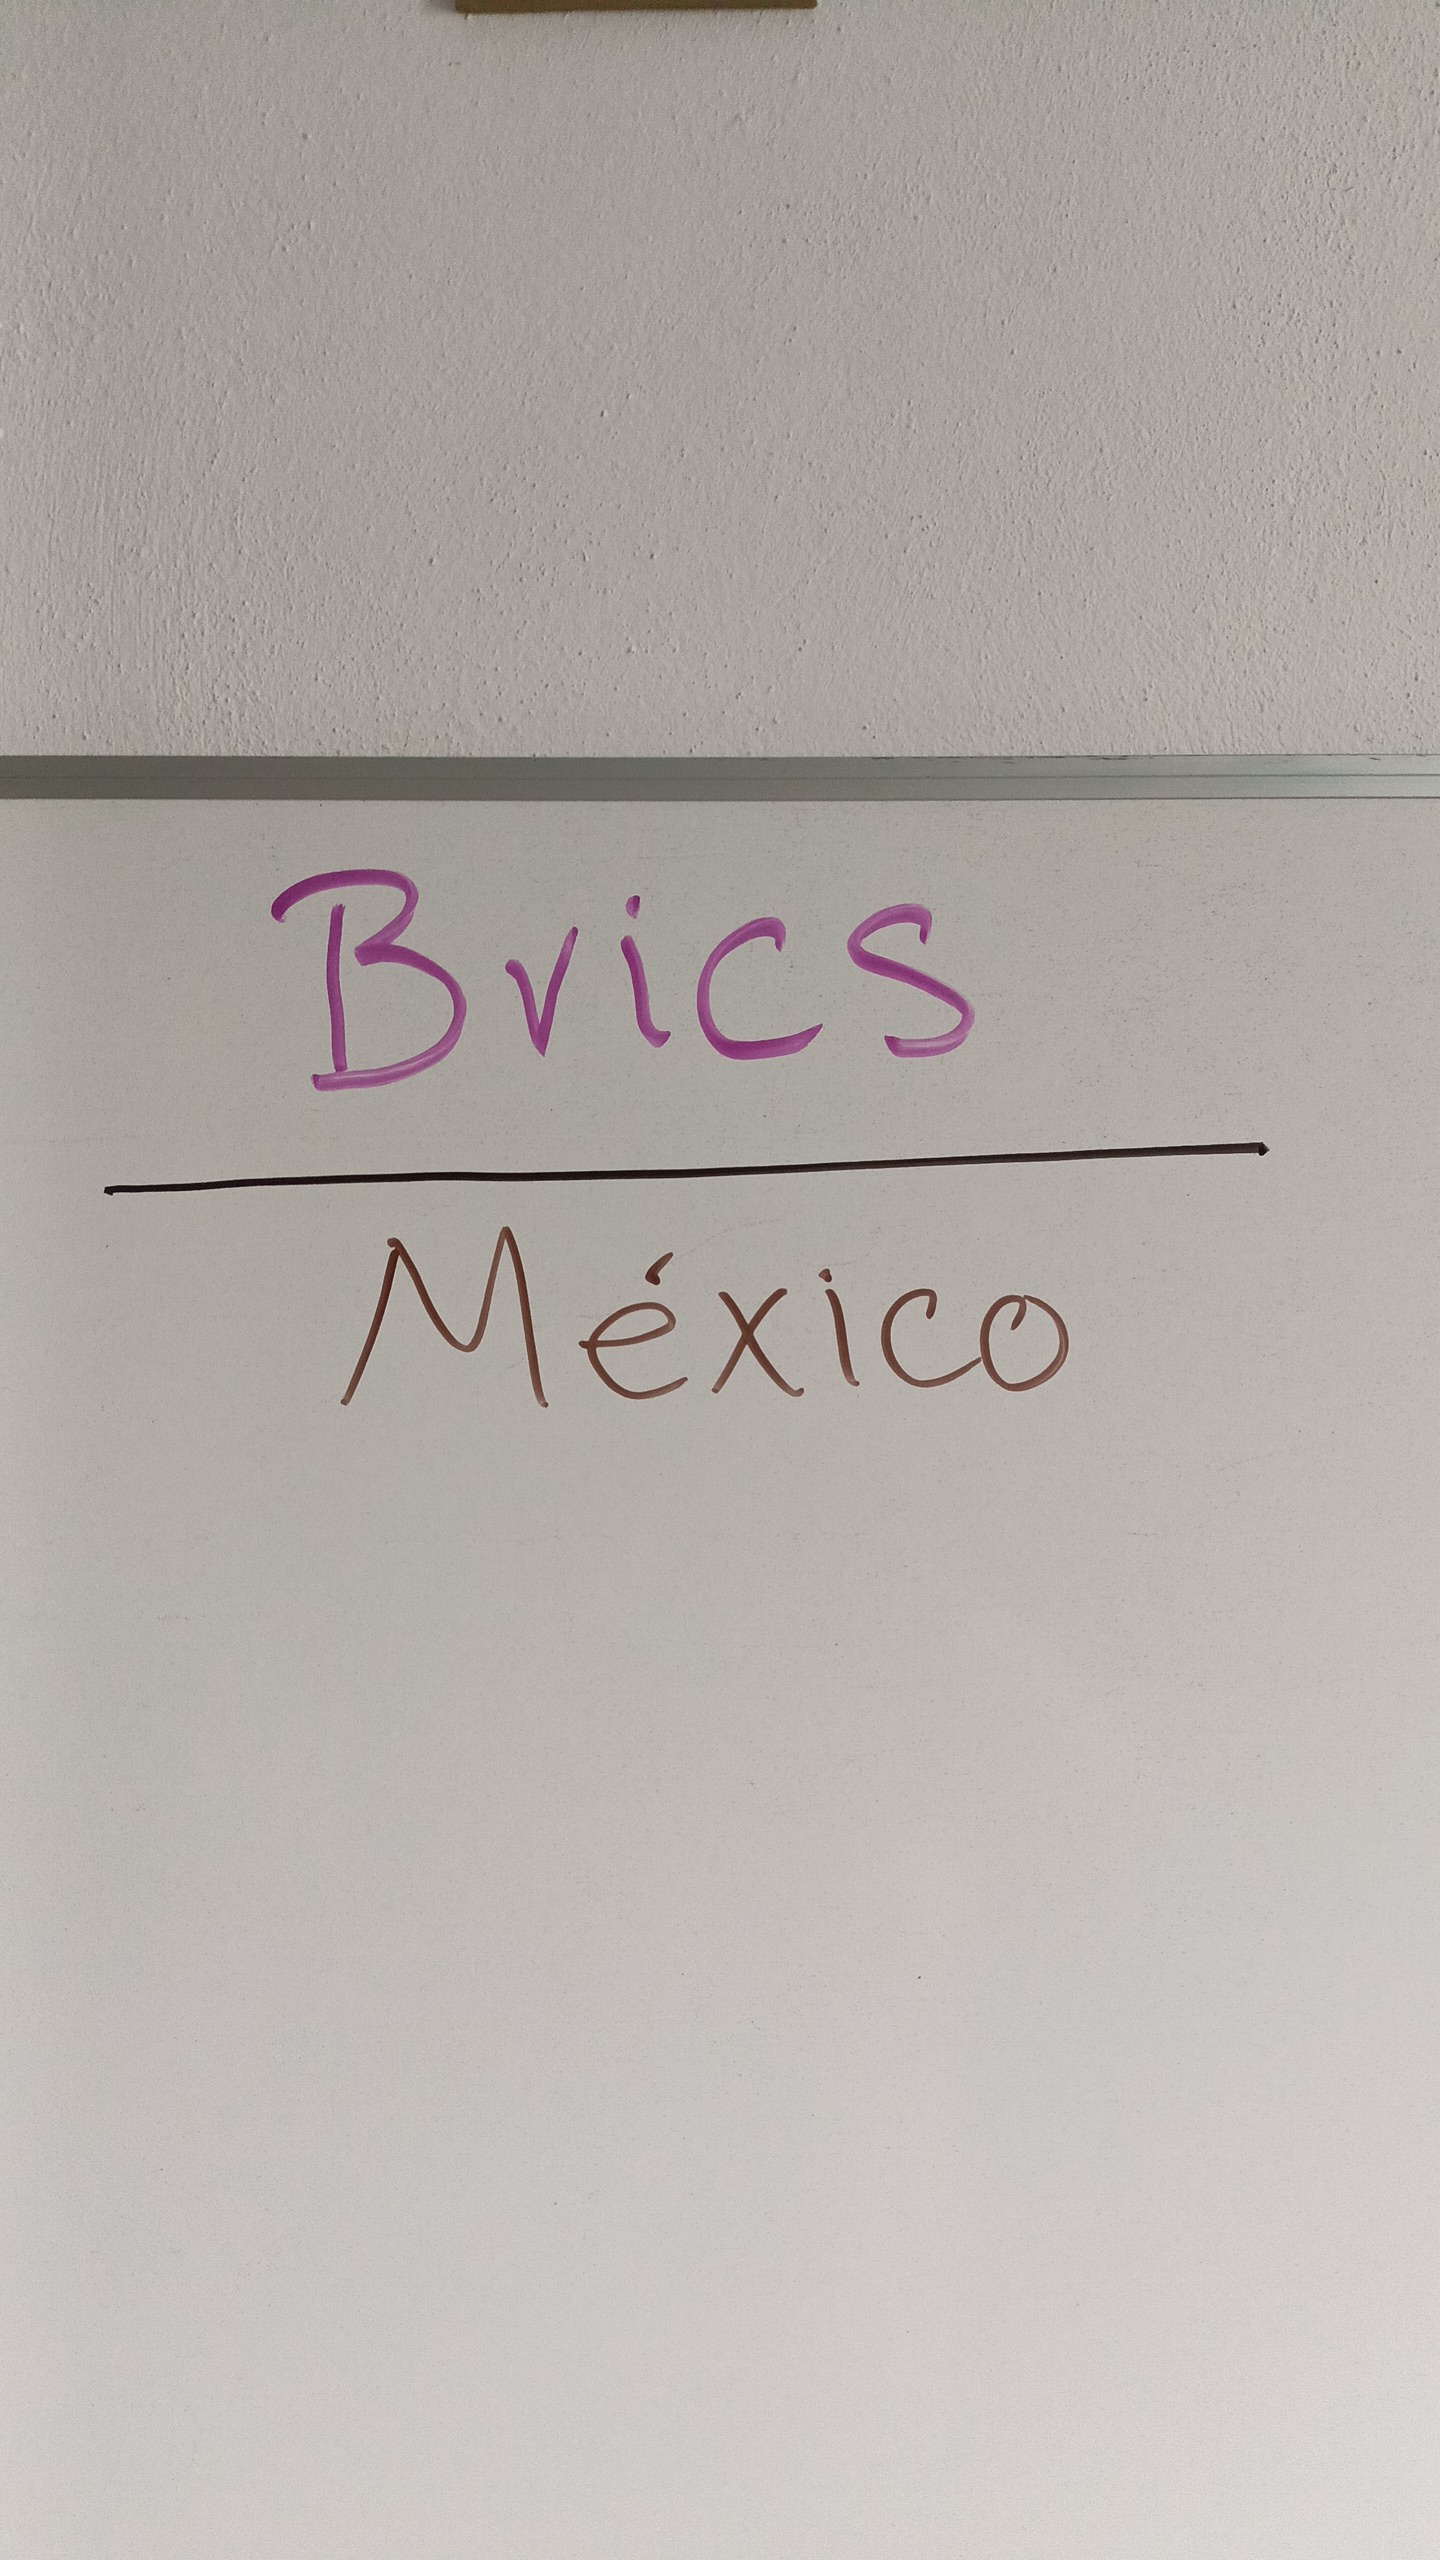 Brics
México